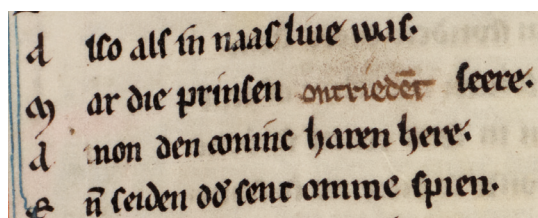 A lso alſ in naaſ liue was.
M ar die prinſen ontriedēt ſeere.
A mon den coninc haren here.
E n̄ ſeiden dȣ ſent omme ſpien.